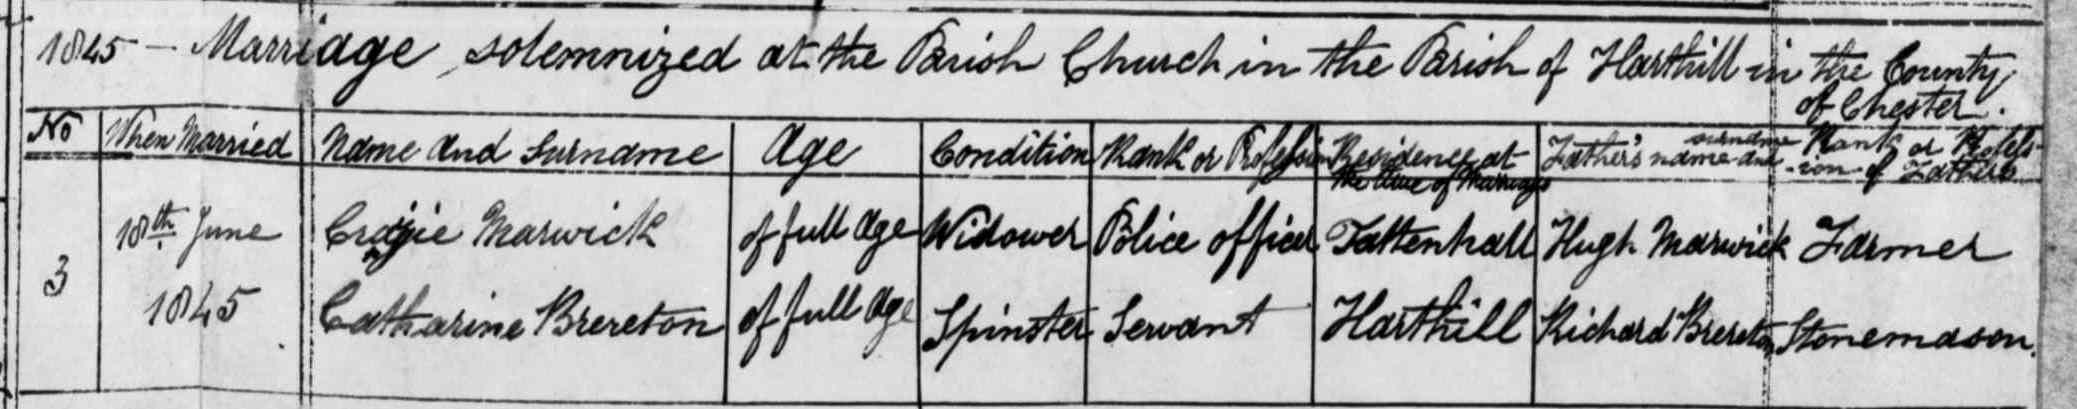 1845 – Marriage solemnized at the Parish Church in the Parish of Harthill in the County
of Chester.
No When Married Name and Surname Age Condition Rank or Profession Residence at the time of Marriage Father's name and surname Rank or Profession of Fathers
3 18th June 1845 Craigie Marwick of full Age Widower Police officer Tattenhall Hugh Marwick Farmer
Catharine Brereton of full Age Spinster Servant Harthill Richard Brereton Stonemason.